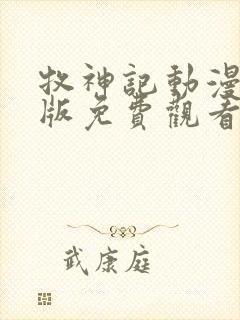 牧神記動漫
版免費觀看
武康庭